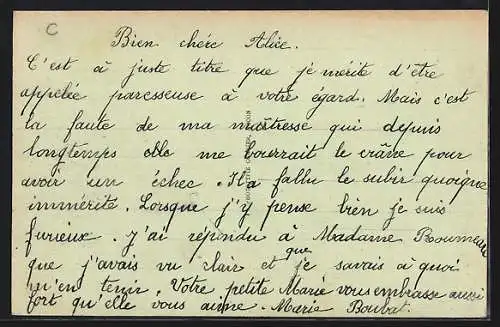 C
Bien chère Alice.
C'est à juste titre que je mérite d'être
appelée paresseuse à votre égard. Mais c'est
la faute de ma maîtresse qui depuis
longtemps elle me bourrait le crâne pour
avoir un échec. Il a fallu le subir quoique
immérité. Lorsque j'y pense bien je suis
furieux. J'ai répondu à Madame Roumeau
que j'avais vu clair et que je savais à quoi
m'en tenir. Votre petite Marie vous embrasse aussi
fort qu'elle vous aime. Marie Boubat.